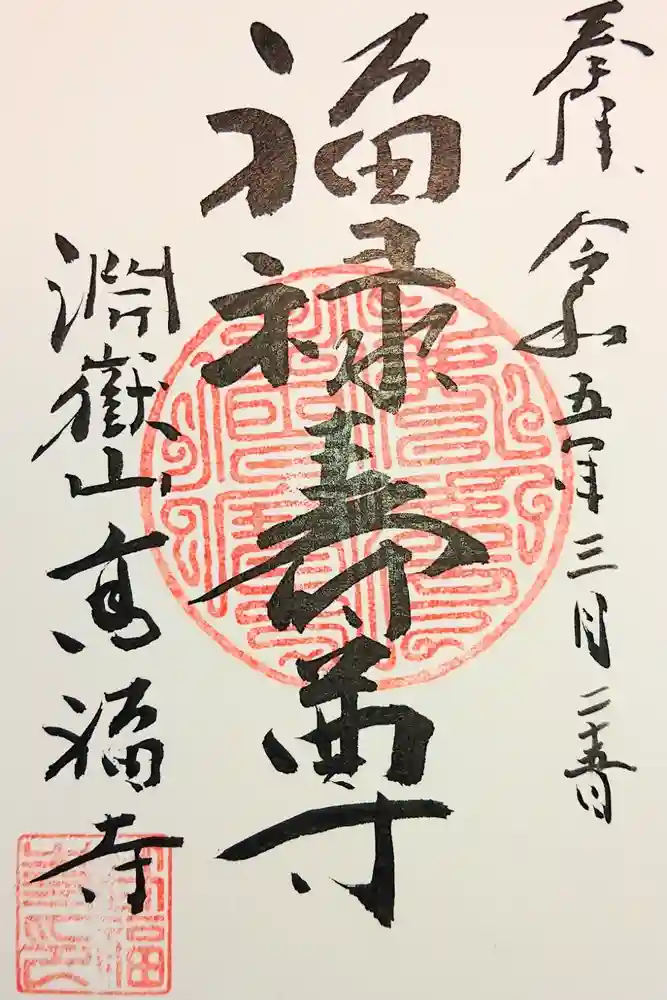 奉拝 令和五年三月二十五日
福禄寿尊
渕嶽山高福寺